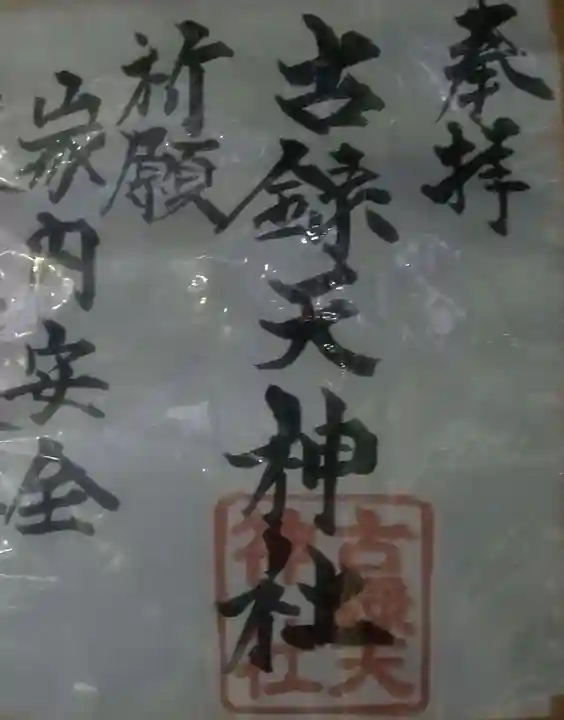 奉拝
古録天神社
祈願
家内安全
古録天
神社